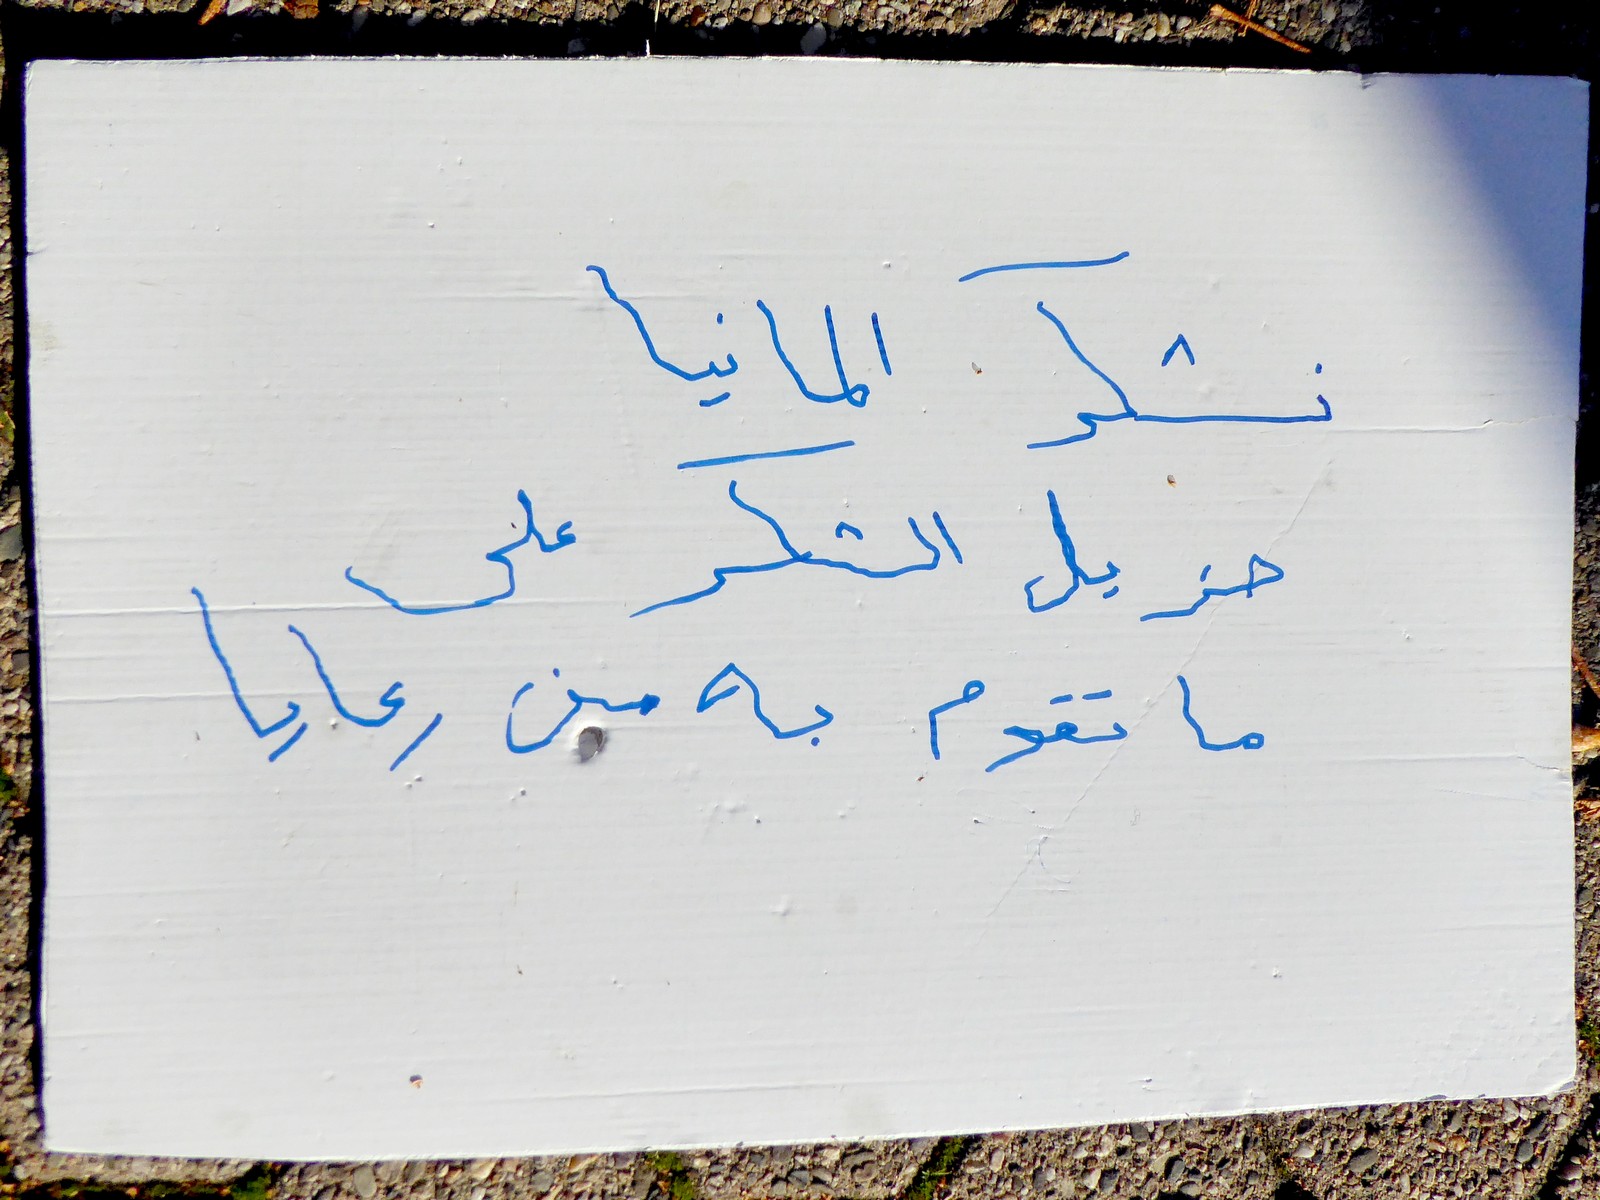 نشكر المانيا
جزيل الشكر على
ما تقوم به من رعايا